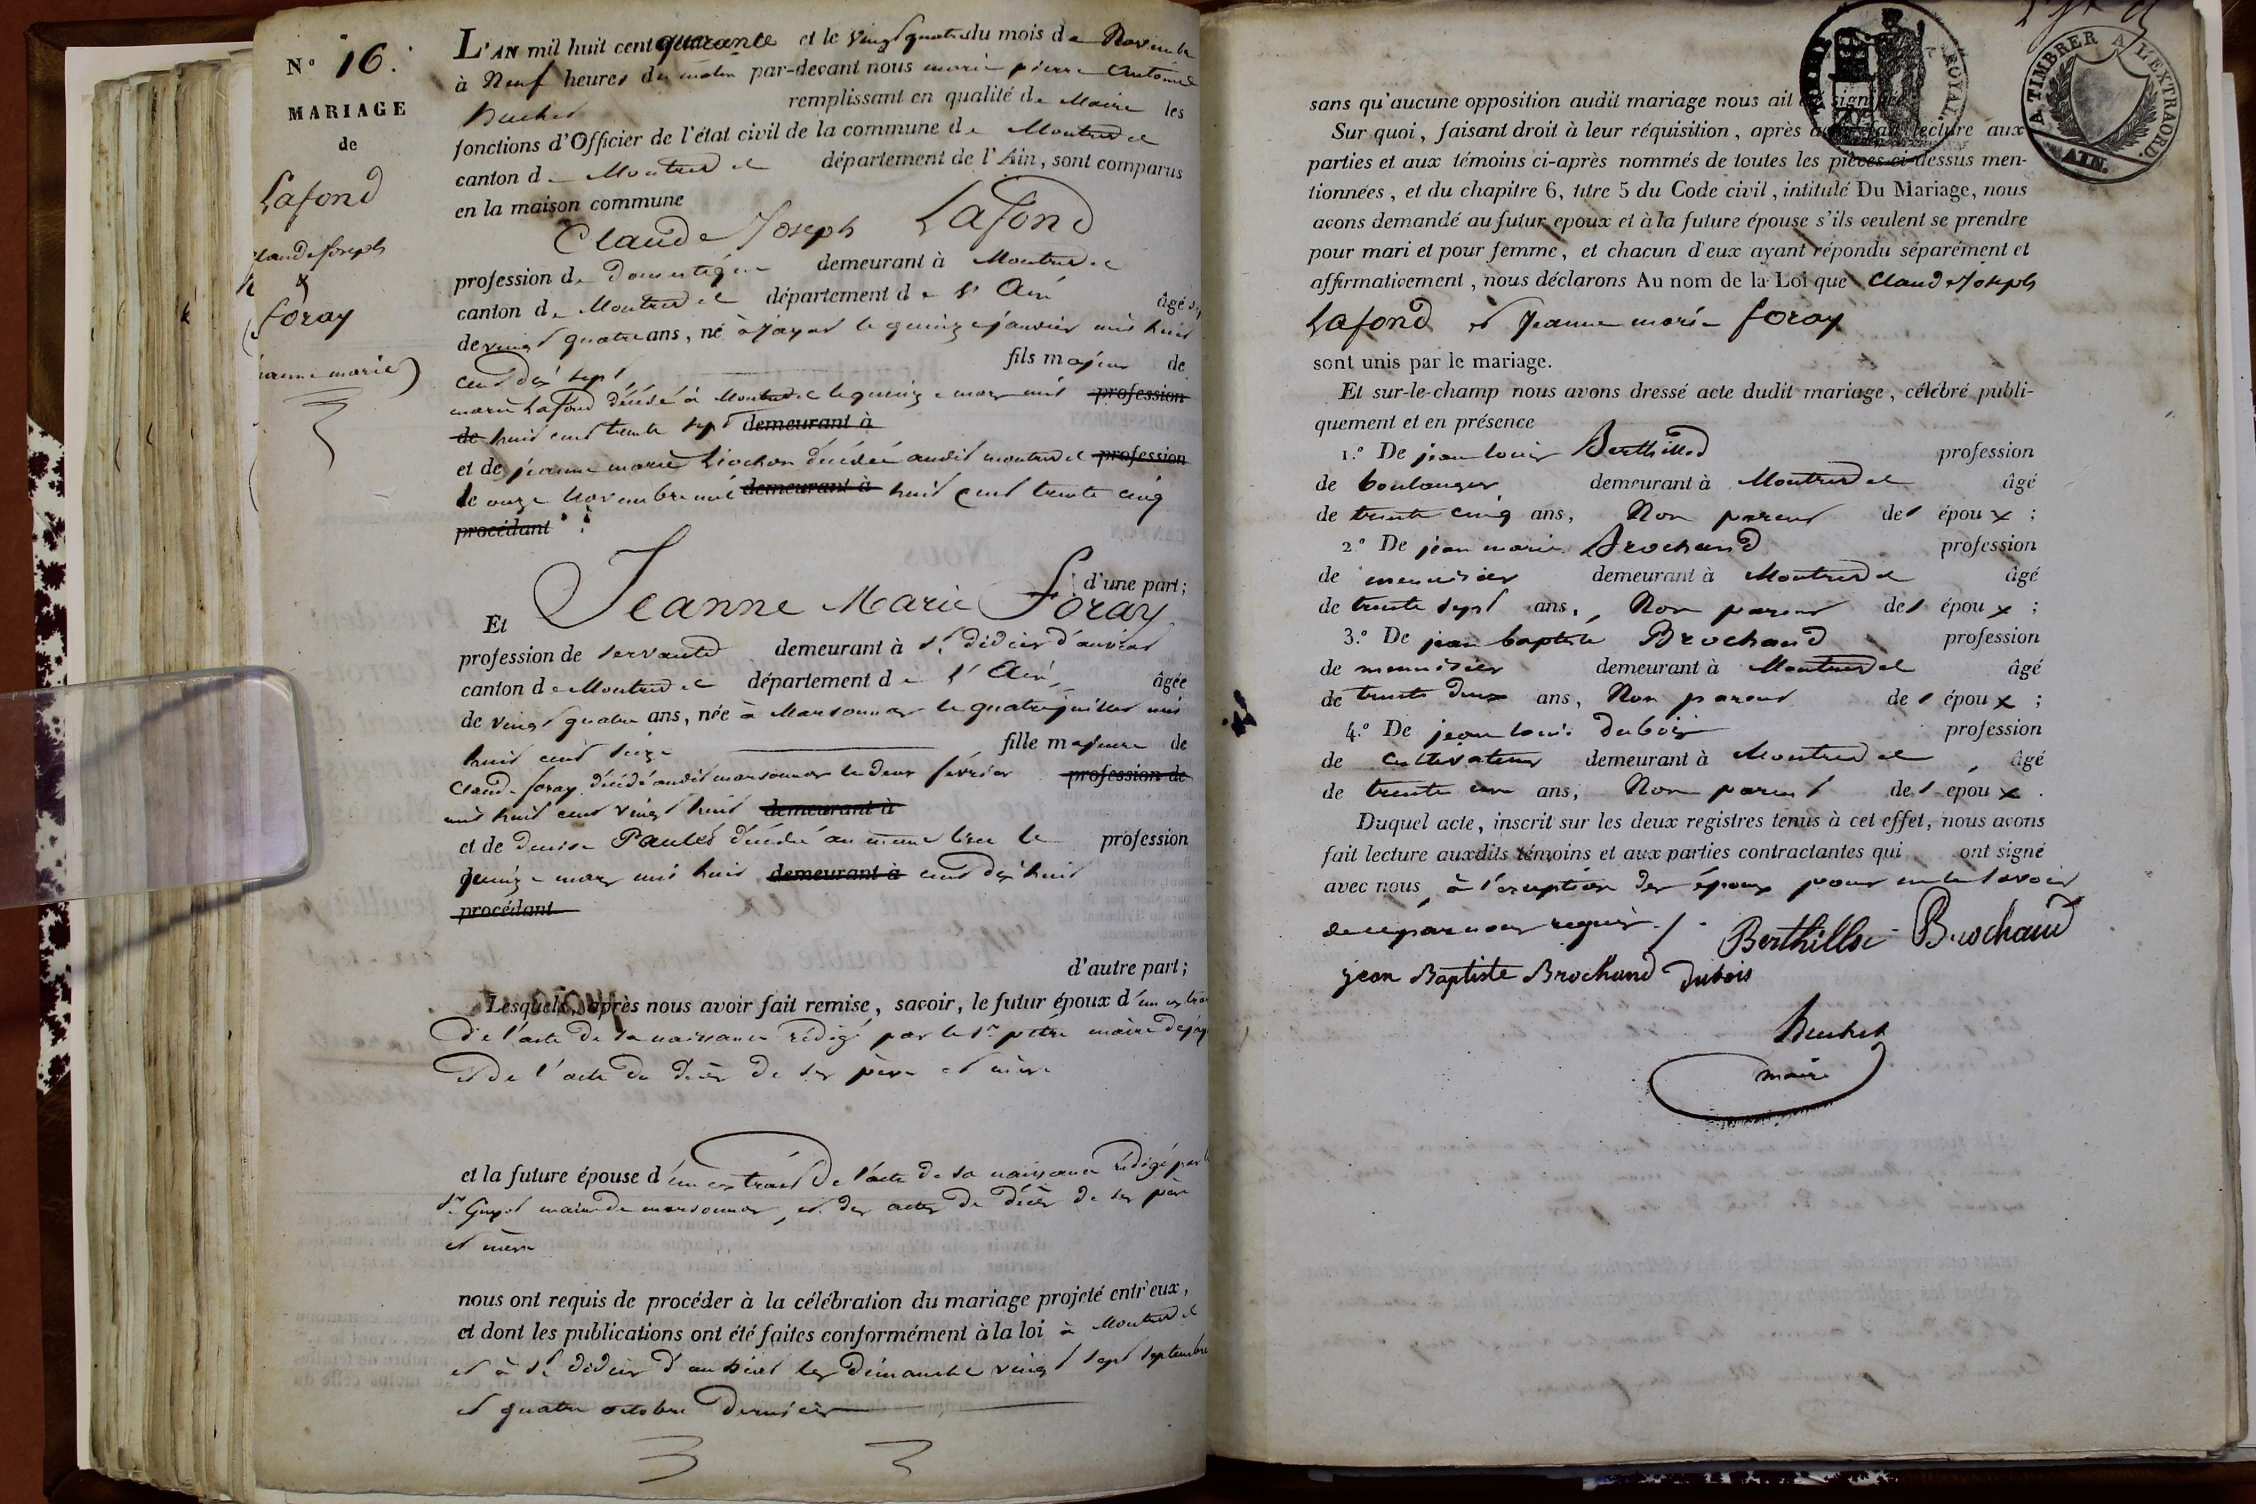 N.º 16.
MARIAGE
de
Lafond
Claude Joseph
&
foray
jeanne marie
L'AN mil huit cent quarante et le vingt quatre du mois de Novembre
à Neuf heures du matin par-devant nous marie pierre Antoine
Buchet remplissant en qualité de Maire les
fonctions d'Officier de l'état civil de la commune de Montrevel
canton de Montrevel département de l'Ain, sont comparus
en la maison commune
Claude Joseph Lafond
profession de Domestique demeurant à Montrevel
canton de Montrevel département de l'Ain âgé
de vingt quatre ans, né à jayat le quinze janvier mil huit
cent dix sept fils majeur de
marie Lafond décédé à Montrevel le quinze mars mil profession
de huit cent trente sept demeurant à
et de jeanne marie décédée audit montrevel profession
le onze Novembre mil demeurant à huit cent trente cinq
procédant
d'une part;
Et Jeanne Marie Foray
profession de servante demeurant à St didier d'aussiat
canton de Montrevel département de l'Ain, âgée
de vingt quatre ans, née à Marsonnas le quatre juillet mil
huit cent seize fille majeure de
Claude foray décédé audit marsonnas le deux février profession de
mil huit cent vingt huit demeurant à
et de denise décédée au même lieu le profession
quinze mars mil huit demeurant à cent dix huit
procédant
d'autre part;
Lesquels, après nous avoir fait remise, savoir, le futur époux d'un extrait
de l'acte de sa naissance rédigé par le Sr maire de jayat
et de l'acte de décès de ses père et mère
et la future épouse d'un extrait de l'acte de sa naissance rédigé par le
Sr Guyot maire de marsonnas, et des actes de décès de ses père
et mère
nous ont requis de procéder à la célébration du mariage projeté entr'eux,
et dont les publications ont été faites conformément à la loi à Montrevel
et à St didier d'aussiat les dimanche vingt sept septembre
et quatre octobre dernier
A TIMBRER A L'EXTRAORD.
AIN.
ROYAL.
sans qu'aucune opposition audit mariage nous ait été signifiée.
Sur quoi, faisant droit à leur réquisition, après avoir fait lecture aux
parties et aux témoins ci-après nommés de toutes les pièces ci-dessus men-
tionnées, et du chapitre 6, titre 5 du Code civil, intitulé Du Mariage, nous
avons demandé au futur epoux et à la future épouse s'ils veulent se prendre
pour mari et pour femme, et chacun d'eux ayant répondu séparément et
affirmativement, nous déclarons Au nom de la Loi que Claude Joseph
Lafond et Jeanne marie foray
sont unis par le mariage.
Et sur-le-champ nous avons dressé acte dudit mariage, célébré publi-
quement et en présence
1.º De jean louis Berthillod profession
de boulanger demeurant à Montrevel âgé
de trente cinq ans, Non parent des époux ;
2.º De jean marie Brochand profession
de menuisier demeurant à Montrevel âgé
de trente sept ans, Non parent des époux ;
3.º De jean baptiste Brochand profession
de menuisier demeurant à Montrevel âgé
de trente deux ans, Non parent des époux ;
4.º De jean louis dubois profession
de cultivateur demeurant à Montrevel, âgé
de trente un ans, Non parent des époux.
Duquel acte, inscrit sur les deux registres tenus à cet effet, nous avons
fait lecture auxdits témoins et aux parties contractantes qui ont signé
avec nous, à l'exception des époux pour ne le savoir
de ce par nous requis /.
Berthillod Brochand
jean Baptiste Brochand Dubois
Buchet
maire